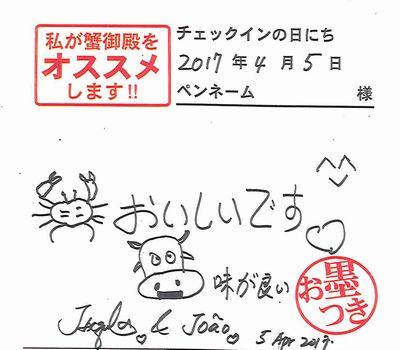 私が蟹御殿を
オススメ
します!!
チェックインの日にち
2017 年 4 月 5 日
ペンネーム 様
おいしいです
味が良い
& João
5 Apr 2017.
お墨つき